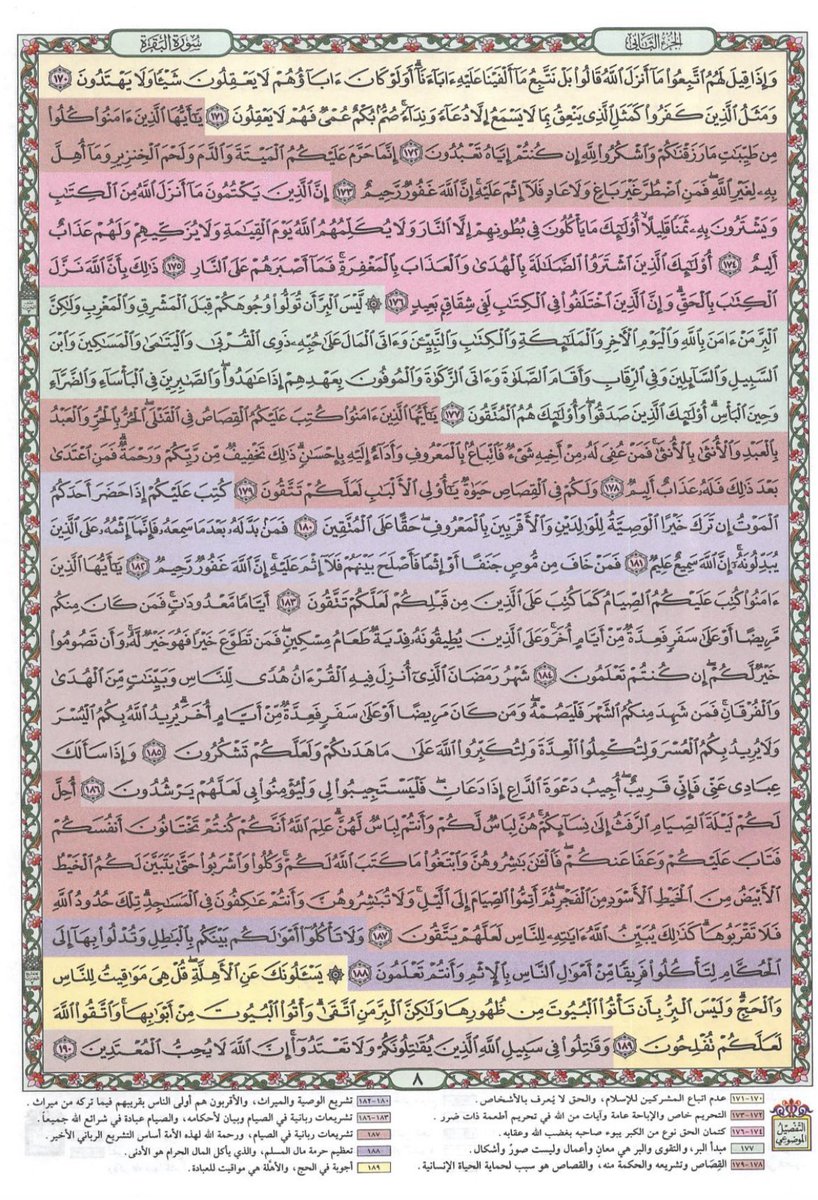 الجزء الثاني
سورة البقرة
وَإِذَا قِيلَ لَهُمُ ٱتَّبِعُوا۟ مَآ أَنزَلَ ٱللَّهُ قَالُوا۟ بَلْ نَتَّبِعُ مَآ أَلْفَيْنَا عَلَيْهِ ءَابَآءَنَآ أَوَلَوْ كَانَ ءَابَآؤُهُمْ لَا يَعْقِلُونَ شَيْـًٔا وَلَا يَهْتَدُونَ ١٧٠
وَمَثَلُ ٱلَّذِينَ كَفَرُوا۟ كَمَثَلِ ٱلَّذِى يَنْعِقُ بِمَا لَا يَسْمَعُ إِلَّا دُعَآءً وَنِدَآءً صُمٌّۢ بُكْمٌ عُمْىٌ فَهُمْ لَا يَعْقِلُونَ ١٧١ يَـٰٓأَيُّهَا ٱلَّذِينَ ءَامَنُوا۟ كُلُوا۟
مِن طَيِّبَـٰتِ مَا رَزَقْنَـٰكُمْ وَٱشْكُرُوا۟ لِلَّهِ إِن كُنتُمْ إِيَّاهُ تَعْبُدُونَ ١٧٢ إِنَّمَا حَرَّمَ عَلَيْكُمُ ٱلْمَيْتَةَ وَٱلدَّمَ وَلَحْمَ ٱلْخِنزِيرِ وَمَآ أُهِلَّ
بِهِۦ لِغَيْرِ ٱللَّهِ فَمَنِ ٱضْطُرَّ غَيْرَ بَاغٍ وَلَا عَادٍ فَلَآ إِثْمَ عَلَيْهِ إِنَّ ٱللَّهَ غَفُورٌ رَّحِيمٌ ١٧٣ إِنَّ ٱلَّذِينَ يَكْتُمُونَ مَآ أَنزَلَ ٱللَّهُ مِنَ ٱلْكِتَـٰبِ
وَيَشْتَرُونَ بِهِۦ ثَمَنًا قَلِيلًا أُو۟لَـٰٓئِكَ مَا يَأْكُلُونَ فِى بُطُونِهِمْ إِلَّا ٱلنَّارَ وَلَا يُكَلِّمُهُمُ ٱللَّهُ يَوْمَ ٱلْقِيَـٰمَةِ وَلَا يُزَكِّيهِمْ وَلَهُمْ عَذَابٌ
أَلِيمٌ ١٧٤ أُو۟لَـٰٓئِكَ ٱلَّذِينَ ٱشْتَرَوُا۟ ٱلضَّلَـٰلَةَ بِٱلْهُدَىٰ وَٱلْعَذَابَ بِٱلْمَغْفِرَةِ فَمَآ أَصْبَرَهُمْ عَلَى ٱلنَّارِ ١٧٥ ذَٰلِكَ بِأَنَّ ٱللَّهَ نَزَّلَ
ٱلْكِتَـٰبَ بِٱلْحَقِّ وَإِنَّ ٱلَّذِينَ ٱخْتَلَفُوا۟ فِى ٱلْكِتَـٰبِ لَفِى شِقَاقٍۭ بَعِيدٍ ١٧٦ ۞ لَّيْسَ ٱلْبِرَّ أَن تُوَلُّوا۟ وُجُوهَكُمْ قِبَلَ ٱلْمَشْرِقِ وَٱلْمَغْرِبِ وَلَـٰكِنَّ
ٱلْبِرَّ مَنْ ءَامَنَ بِٱللَّهِ وَٱلْيَوْمِ ٱلْـَٔاخِرِ وَٱلْمَلَـٰٓئِكَةِ وَٱلْكِتَـٰبِ وَٱلنَّبِيِّـۧنَ وَءَاتَى ٱلْمَالَ عَلَىٰ حُبِّهِۦ ذَوِى ٱلْقُرْبَىٰ وَٱلْيَتَـٰمَىٰ وَٱلْمَسَـٰكِينَ وَٱبْنَ
ٱلسَّبِيلِ وَٱلسَّآئِلِينَ وَفِى ٱلرِّقَابِ وَأَقَامَ ٱلصَّلَوٰةَ وَءَاتَى ٱلزَّكَوٰةَ وَٱلْمُوفُونَ بِعَهْدِهِمْ إِذَا عَـٰهَدُوا۟ وَٱلصَّـٰبِرِينَ فِى ٱلْبَأْسَآءِ وَٱلضَّرَّآءِ
وَحِينَ ٱلْبَأْسِ أُو۟لَـٰٓئِكَ ٱلَّذِينَ صَدَقُوا۟ وَأُو۟لَـٰٓئِكَ هُمُ ٱلْمُتَّقُونَ ١٧٧ يَـٰٓأَيُّهَا ٱلَّذِينَ ءَامَنُوا۟ كُتِبَ عَلَيْكُمُ ٱلْقِصَاصُ فِى ٱلْقَتْلَى ٱلْحُرُّ بِٱلْحُرِّ وَٱلْعَبْدُ
بِٱلْعَبْدِ وَٱلْأُنثَىٰ بِٱلْأُنثَىٰ فَمَنْ عُفِىَ لَهُۥ مِنْ أَخِيهِ شَىْءٌ فَٱتِّبَاعٌۢ بِٱلْمَعْرُوفِ وَأَدَآءٌ إِلَيْهِ بِإِحْسَـٰنٍ ذَٰلِكَ تَخْفِيفٌ مِّن رَّبِّكُمْ وَرَحْمَةٌ فَمَنِ ٱعْتَدَىٰ
بَعْدَ ذَٰلِكَ فَلَهُۥ عَذَابٌ أَلِيمٌ ١٧٨ وَلَكُمْ فِى ٱلْقِصَاصِ حَيَوٰةٌ يَـٰٓأُو۟لِى ٱلْأَلْبَـٰبِ لَعَلَّكُمْ تَتَّقُونَ ١٧٩ كُتِبَ عَلَيْكُمْ إِذَا حَضَرَ أَحَدَكُمُ
ٱلْمَوْتُ إِن تَرَكَ خَيْرًا ٱلْوَصِيَّةُ لِلْوَٰلِدَيْنِ وَٱلْأَقْرَبِينَ بِٱلْمَعْرُوفِ حَقًّا عَلَى ٱلْمُتَّقِينَ ١٨٠ فَمَنۢ بَدَّلَهُۥ بَعْدَ مَا سَمِعَهُۥ فَإِنَّمَآ إِثْمُهُۥ عَلَى ٱلَّذِينَ
يُبَدِّلُونَهُۥٓ إِنَّ ٱللَّهَ سَمِيعٌ عَلِيمٌ ١٨١ فَمَنْ خَافَ مِن مُّوصٍ جَنَفًا أَوْ إِثْمًا فَأَصْلَحَ بَيْنَهُمْ فَلَآ إِثْمَ عَلَيْهِ إِنَّ ٱللَّهَ غَفُورٌ رَّحِيمٌ ١٨٢ يَـٰٓأَيُّهَا ٱلَّذِينَ
ءَامَنُوا۟ كُتِبَ عَلَيْكُمُ ٱلصِّيَامُ كَمَا كُتِبَ عَلَى ٱلَّذِينَ مِن قَبْلِكُمْ لَعَلَّكُمْ تَتَّقُونَ ١٨٣ أَيَّامًا مَّعْدُودَٰتٍ فَمَن كَانَ مِنكُم
مَّرِيضًا أَوْ عَلَىٰ سَفَرٍ فَعِدَّةٌ مِّنْ أَيَّامٍ أُخَرَ وَعَلَى ٱلَّذِينَ يُطِيقُونَهُۥ فِدْيَةٌ طَعَامُ مِسْكِينٍ فَمَن تَطَوَّعَ خَيْرًا فَهُوَ خَيْرٌ لَّهُۥ وَأَن تَصُومُوا۟
خَيْرٌ لَّكُمْ إِن كُنتُمْ تَعْلَمُونَ ١٨٤ شَهْرُ رَمَضَانَ ٱلَّذِىٓ أُنزِلَ فِيهِ ٱلْقُرْءَانُ هُدًى لِّلنَّاسِ وَبَيِّنَـٰتٍ مِّنَ ٱلْهُدَىٰ
وَٱلْفُرْقَانِ فَمَن شَهِدَ مِنكُمُ ٱلشَّهْرَ فَلْيَصُمْهُ وَمَن كَانَ مَرِيضًا أَوْ عَلَىٰ سَفَرٍ فَعِدَّةٌ مِّنْ أَيَّامٍ أُخَرَ يُرِيدُ ٱللَّهُ بِكُمُ ٱلْيُسْرَ
وَلَا يُرِيدُ بِكُمُ ٱلْعُسْرَ وَلِتُكْمِلُوا۟ ٱلْعِدَّةَ وَلِتُكَبِّرُوا۟ ٱللَّهَ عَلَىٰ مَا هَدَىٰكُمْ وَلَعَلَّكُمْ تَشْكُرُونَ ١٨٥ وَإِذَا سَأَلَكَ
عِبَادِى عَنِّى فَإِنِّى قَرِيبٌ أُجِيبُ دَعْوَةَ ٱلدَّاعِ إِذَا دَعَانِ فَلْيَسْتَجِيبُوا۟ لِى وَلْيُؤْمِنُوا۟ بِى لَعَلَّهُمْ يَرْشُدُونَ ١٨٦ أُحِلَّ
لَكُمْ لَيْلَةَ ٱلصِّيَامِ ٱلرَّفَثُ إِلَىٰ نِسَآئِكُمْ هُنَّ لِبَاسٌ لَّكُمْ وَأَنتُمْ لِبَاسٌ لَّهُنَّ عَلِمَ ٱللَّهُ أَنَّكُمْ كُنتُمْ تَخْتَانُونَ أَنفُسَكُمْ
فَتَابَ عَلَيْكُمْ وَعَفَا عَنكُمْ فَٱلْـَٔـٰنَ بَـٰشِرُوهُنَّ وَٱبْتَغُوا۟ مَا كَتَبَ ٱللَّهُ لَكُمْ وَكُلُوا۟ وَٱشْرَبُوا۟ حَتَّىٰ يَتَبَيَّنَ لَكُمُ ٱلْخَيْطُ
ٱلْأَبْيَضُ مِنَ ٱلْخَيْطِ ٱلْأَسْوَدِ مِنَ ٱلْفَجْرِ ثُمَّ أَتِمُّوا۟ ٱلصِّيَامَ إِلَى ٱلَّيْلِ وَلَا تُبَـٰشِرُوهُنَّ وَأَنتُمْ عَـٰكِفُونَ فِى ٱلْمَسَـٰجِدِ تِلْكَ حُدُودُ ٱللَّهِ
فَلَا تَقْرَبُوهَا كَذَٰلِكَ يُبَيِّنُ ٱللَّهُ ءَايَـٰتِهِۦ لِلنَّاسِ لَعَلَّهُمْ يَتَّقُونَ ١٨٧ وَلَا تَأْكُلُوٓا۟ أَمْوَٰلَكُم بَيْنَكُم بِٱلْبَـٰطِلِ وَتُدْلُوا۟ بِهَآ إِلَى
ٱلْحُكَّامِ لِتَأْكُلُوا۟ فَرِيقًا مِّنْ أَمْوَٰلِ ٱلنَّاسِ بِٱلْإِثْمِ وَأَنتُمْ تَعْلَمُونَ ١٨٨ ۞ يَسْـَٔلُونَكَ عَنِ ٱلْأَهِلَّةِ قُلْ هِىَ مَوَٰقِيتُ لِلنَّاسِ
وَٱلْحَجِّ وَلَيْسَ ٱلْبِرُّ بِأَن تَأْتُوا۟ ٱلْبُيُوتَ مِن ظُهُورِهَا وَلَـٰكِنَّ ٱلْبِرَّ مَنِ ٱتَّقَىٰ وَأْتُوا۟ ٱلْبُيُوتَ مِنْ أَبْوَٰبِهَا وَٱتَّقُوا۟ ٱللَّهَ
لَعَلَّكُمْ تُفْلِحُونَ ١٨٩ وَقَـٰتِلُوا۟ فِى سَبِيلِ ٱللَّهِ ٱلَّذِينَ يُقَـٰتِلُونَكُمْ وَلَا تَعْتَدُوٓا۟ إِنَّ ٱللَّهَ لَا يُحِبُّ ٱلْمُعْتَدِينَ ١٩٠
٨
التفصيل الموضوعي
١٧٠-١٧١ عدم اتباع المشركين للإسلام، والحق لا يُعرف بالأشخاص.
١٧٢-١٧٣ التحريم خاص والإباحة عامة وآيات من الله في تحريم أطعمة ذات ضرر.
١٧٤-١٧٦ كتمان الحق نوع من الكبر يبوء صاحبه بغضب الله وعقابه.
١٧٧ مبدأ البر، والتقوى والبر هي معانٍ وأعمال وليست صورٌ وأشكال.
١٧٨-١٧٩ القِصَاص وتشريعه والحكمة منه، والقصاص هو سبب لحماية الحياة الإنسانية.
١٨٠-١٨٢ تشريع الوصية والميراث، والأقربون هم أولى الناس بقريبهم فيما تركه من ميراث.
١٨٣-١٨٦ تشريعات ربانية في الصيام وبيان لأحكامه، والصيام عبادة في شرائع الله جميعاً.
١٨٧ تشريعات ربانية في الصيام، ورحمة الله لهذه الأمة أساس التشريع الرباني الأخير.
١٨٨ تعظيم حرمة مال المسلم، والذي يأكل المال الحرام هو الأدنى.
١٨٩ أجوبة في الحج، والأهلّة هي مواقيت للعبادة.